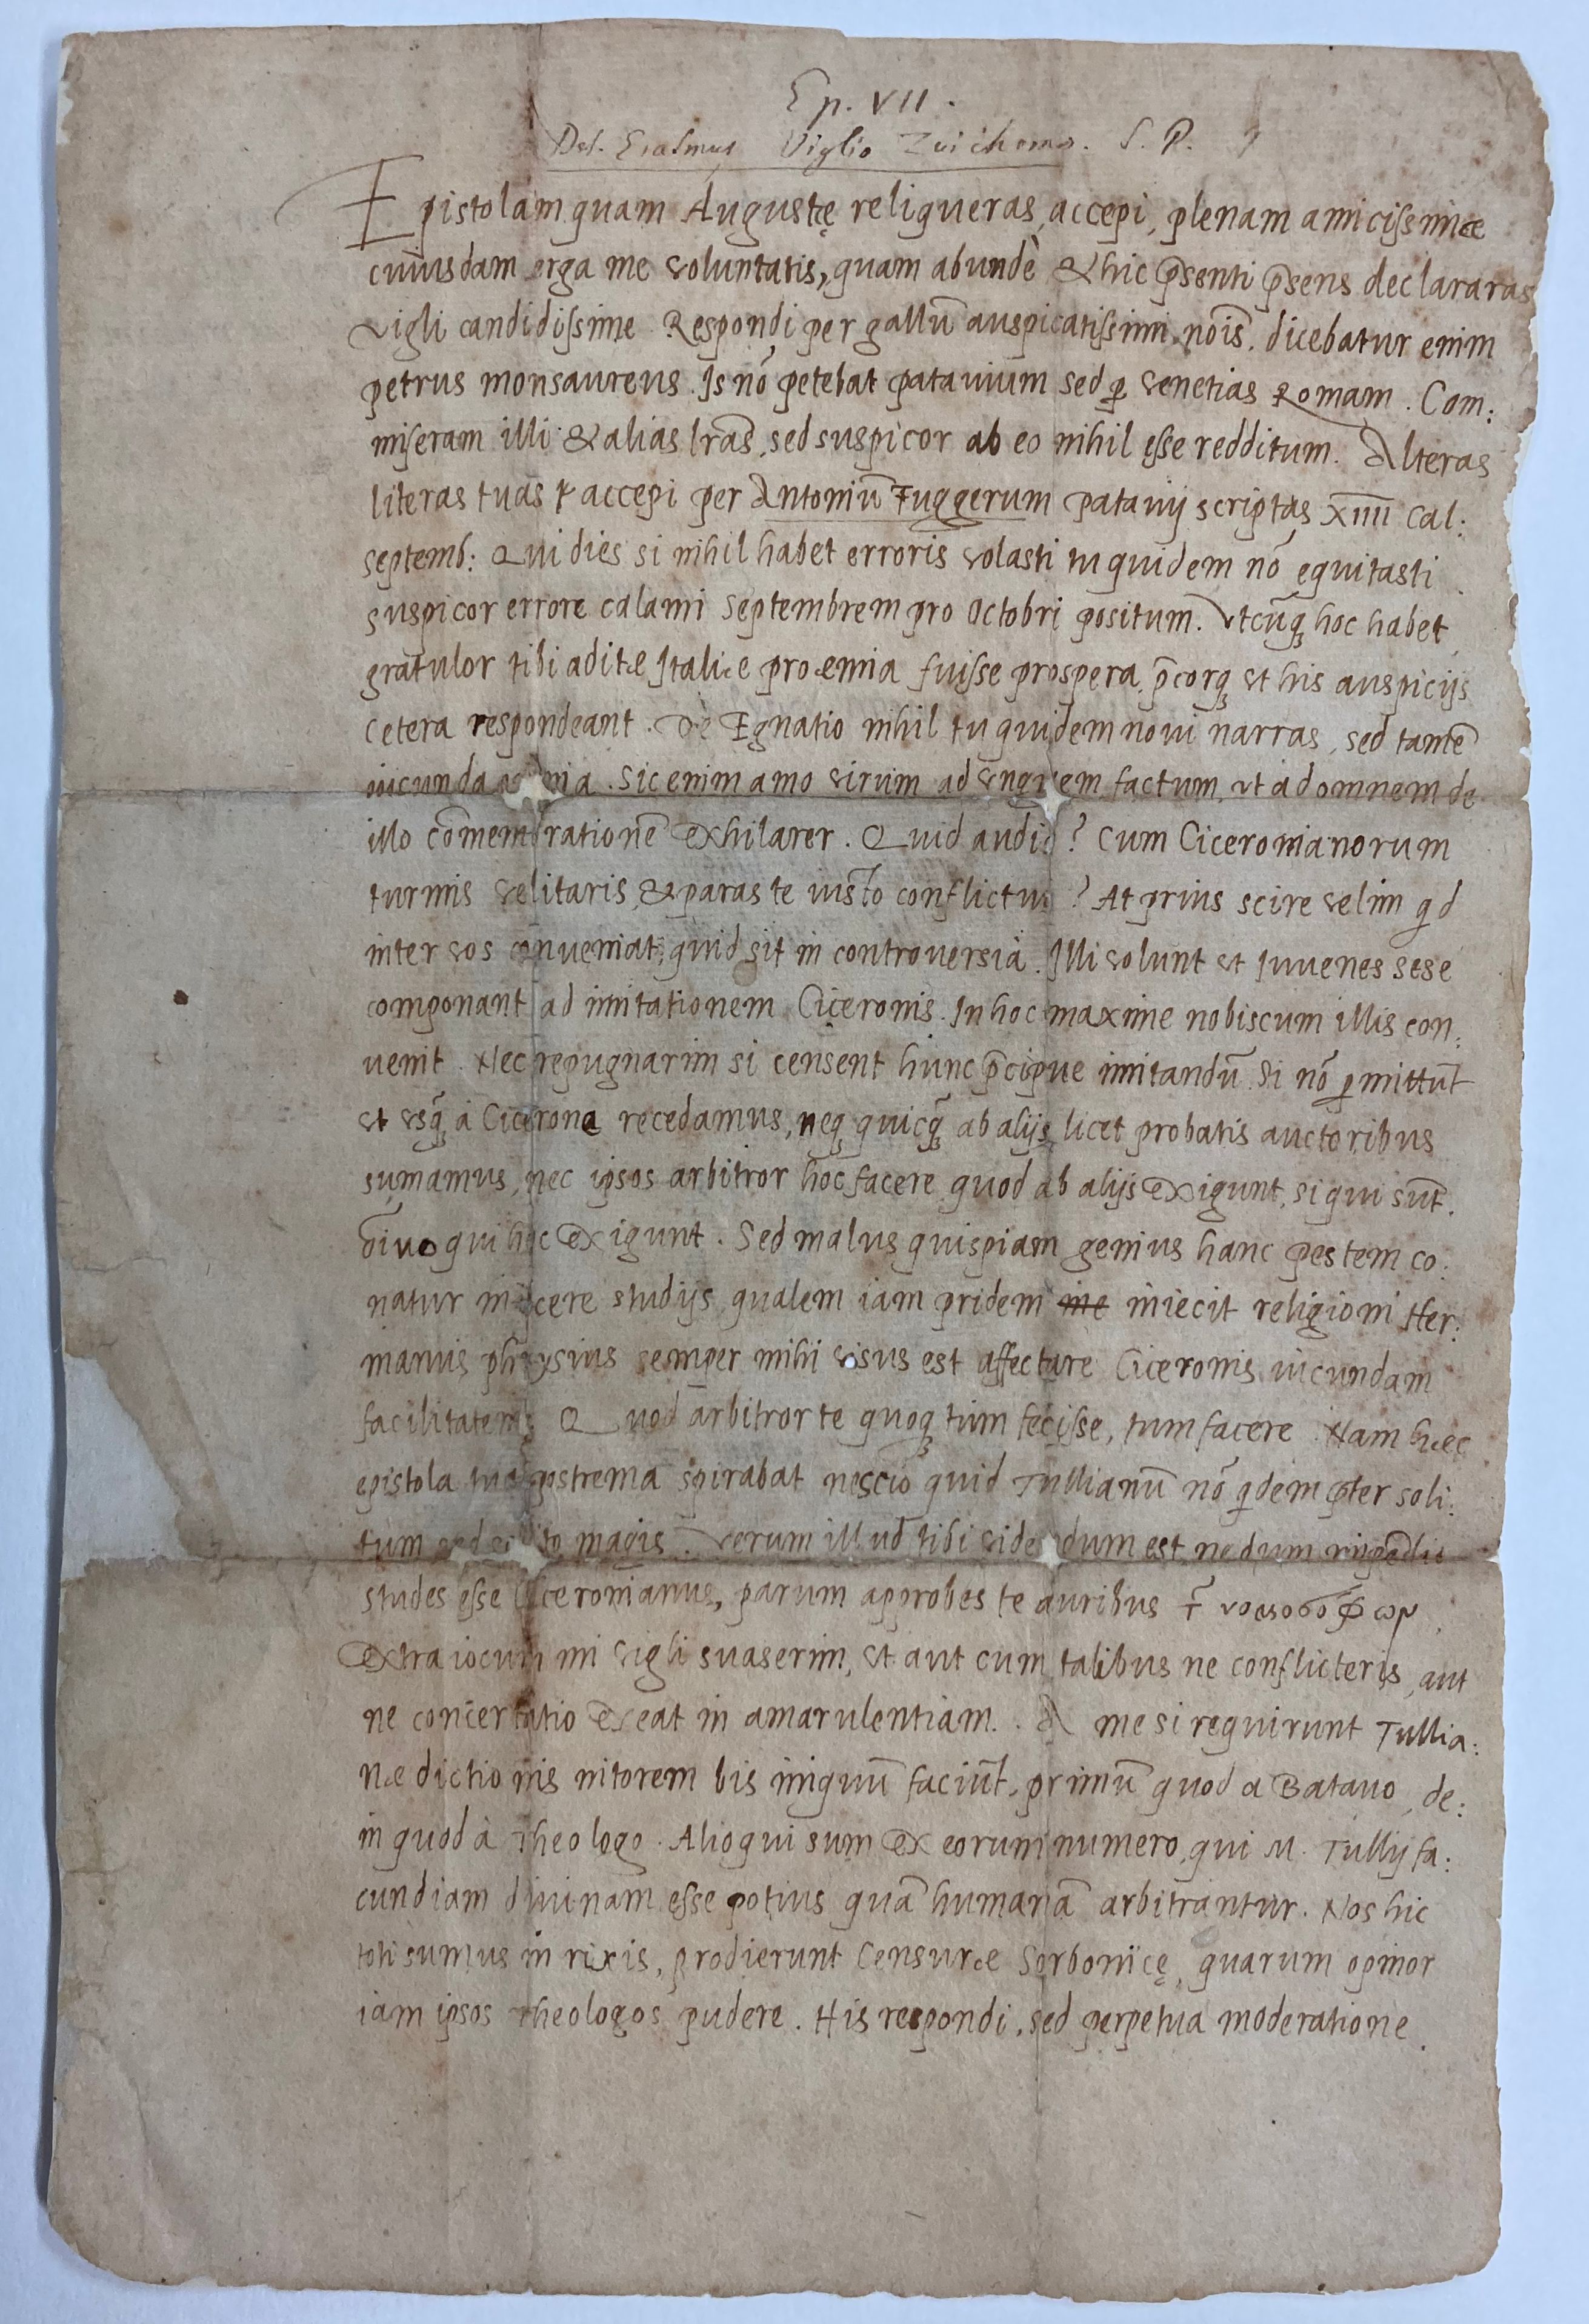 Ep. VII.
Des. Erasmus Viglio Zuichemo. S. P.
Epistolam quam Augustę reliqueras, accepi, plenam amicissimæ
cuiusdam erga me voluntatis, quam abundè & hic p̄senti p̄sens declararas
vigli candidissime. Respondi per gallū auspicatissimi nōis. dicebatur enim
petrus monsaureus. Is nō petebat patauium sed ꝑ venetias Romam. Com:
miseram illi & alias lr̄as, sed suspicor ab eo nihil esse redditum. Alteras
literas tuas accepi per Antoniū Fuggerum patauij scriptas XIIII cal:
septemb: Qui dies si nihil habet erroris volasti tu quidem nō equitasti
suspicor errore calami Septembrem pro Octobri positum. Vtcūq hoc habet,
gratulor tibi aditæ Italiæ proæmia fuisse prospera, p̄corq vt his auspicijs
cetera respondeant. De Egnatio nihil tu quidem noui narras, sed tamē
iucunda omnia. Sic enim amo virum ad vnguem factum, vt ad omnem de
illo cōmemorationē exhilarer. Quid audio? Cum Ciceronianorum
turmis velitaris, & paras te iusto conflictui? At prius scire velim qd
inter vos conueniat, quid sit in controuersia. Illi volunt vt Iuuenes sese
componant ad imitationem Ciceronis. In hoc maxime nobiscum illis con:
uenit. Nec repugnarim si censent hunc p̄cipue imitandū. Si nō ꝑmittūt
vt vsq̄ à Cicerone recedamus, neq quicq̄ ab alijs licet probatis auctoribus
sumamus, nec ipsos arbitror hoc facere quod ab alijs exigunt, si qui sūt.
oīuo qui hoc exigunt. Sed malus quispiam genius hanc pestem co:
natur inijcere studijs, qualem iam pridem me iniecit religioni Her:
manus phrysius semper mihi visus est affectare Ciceronis iucundam
facilitatem, Quod arbitror te quoq tum fecisse, tum facere. Nam hæc
epistola tua postrema spirabat nescio quid Tullianū nō qdem pter soli:
tum sed solito magis. Verum illud tibi videndum est, ne dum impēdio
studes esse Ciceronianus, parum approbes te auribus
Extra iocum mi vigli suaserim, vt aut cum talibus ne conflicteris, aut
ne concertatio exeat in amarulentiam. A me si requirunt Tullia:
næ dictionis nitorem bis iniquū faciūt, primū quod a Batauo, de:
in quod à Theologo. Alioqui sum ex eorum numero, qui M. Tullij fa:
cundiam diuinam esse potius quā humanā arbitrantur. Nos hic
toti sumus in rixis, prodierunt Censuræ Sorbonicę, quarum opinor
iam ipsos theologos pudere. His respondi, sed perpetua moderatione